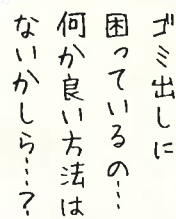 ゴミ出しに
困っているの…
何か良い方法は
ないかしら…?